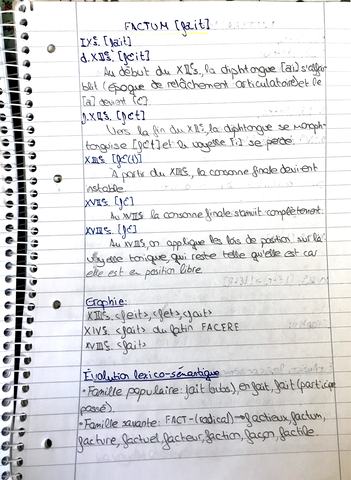 FACTUM [fait]
IXS. [fait]
d.XIIS. [fɛit]
Au début du XIIS, la diphtongue [ai] s'affai
blit (époque de relâchement articulatoire) et le
[a] devient [ɛ].
f.XIIS. [fɛt]
Vers la fin du XIIS, la diphtongue se monoph-
tonguise [fɛt] et la voyelle [i] se perd.
XIIIS. [fɛ(t)]
À partir du XIIIS, la consonne finale devient
instable.
XVIIS. [fɛ]
Au XVIIS la consonne finale s'amuit complètement.
XVIIIS. [fɛ]
Au XVIIIS, on applique les lois de position sur la
voyelle tonique, qui reste telle qu'elle est car
elle est en position libre
Graphie:
XIIIS. <feit>, <fet>, <fait>
XIVS. <faict> du latin FACERE
XVIIIS. <fait>
Évolution lexico-sémantique
• Famille populaire: fait (subs), en fait, fait (participe
passé).
• Famille savante: FACT-(radical) → factieux, factum,
facture, factuel, facteur, faction, façon, factile.